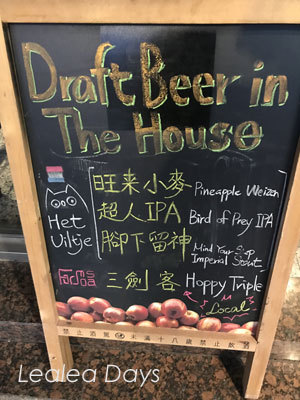 Draft Beer in
The House
Het
Uiltje
旺来小麥 Pineapple Weizen
超人IPA Bird of Prey IPA
腳下留神 Mind Your Step
Imperial Stout
三劍客 Hoppy Triple
Local
禁止酒駕 未滿十八歲禁止飲酒
Lealea Days